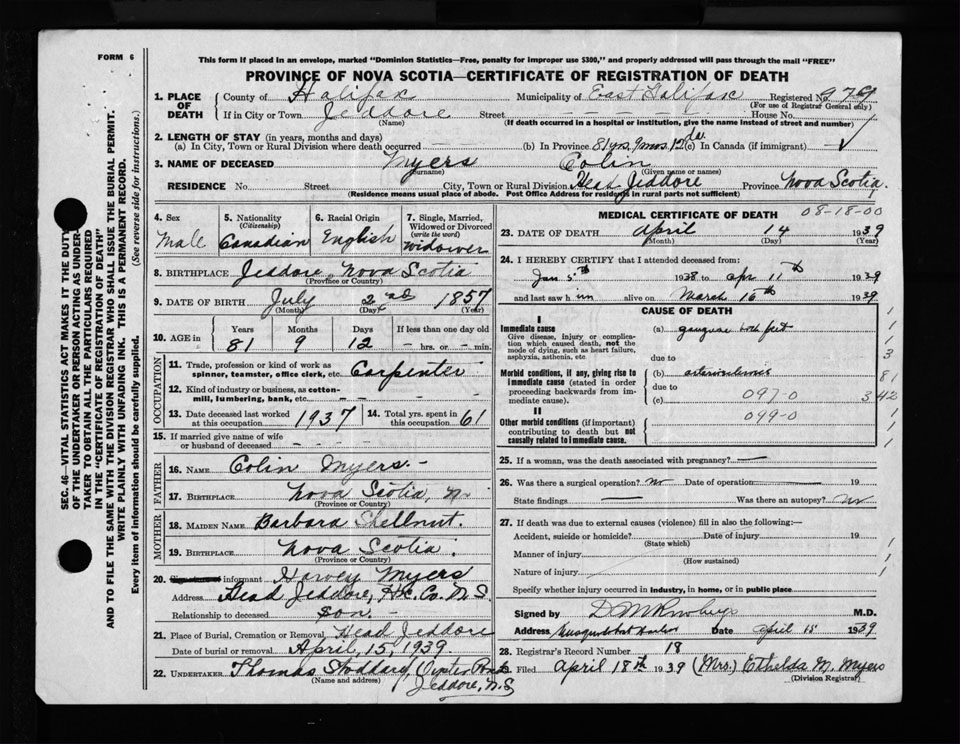 FORM 6
This form if placed in an envelope, marked "Dominion Statistics—Free, penalty for improper use $300," and properly addressed will pass through the mail "FREE"
PROVINCE OF NOVA SCOTIA—CERTIFICATE OF REGISTRATION OF DEATH
1. PLACE OF DEATH County of Halifax Municipality of East Halifax Registered No. 979
(For use of Registrar General only)
If in City or Town Jeddore Street House No.
(Name) (If death occurred in a hospital or institution, give the name instead of street and number)
2. LENGTH OF STAY (in years, months and days)
(a) In City, Town or Rural Division where death occurred (b) In Province 81 yrs. 9 mos. 12 ds. (c) In Canada (if immigrant)
3. NAME OF DECEASED Myers Colin
(Surname) (Given name or names)
RESIDENCE No. Street City, Town or Rural Division Head Jeddore Province Nova Scotia.
(Residence means usual place of abode. Post Office Address for residents in rural parts not sufficient)
4. Sex Male
5. Nationality (Citizenship) Canadian
6. Racial Origin English
7. Single, Married, Widowed or Divorced (write the word) Widower
8. BIRTHPLACE Jeddore, Nova Scotia
(Province or Country)
9. DATE OF BIRTH July 2nd 1857
(Month) (Day) (Year)
10. AGE in Years Months Days If less than one day old
81 9 12 – hrs. or – min.
OCCUPATION
11. Trade, profession or kind of work as spinner, teamster, office clerk, etc. Carpenter
12. Kind of industry or business, as cotton-mill, lumbering, bank, etc.
13. Date deceased last worked at this occupation 1937
14. Total yrs. spent in this occupation 61
15. If married give name of wife or husband of deceased
FATHER
16. NAME Colin Myers.
17. BIRTHPLACE Nova Scotia,
(Province or Country)
MOTHER
18. MAIDEN NAME Barbara Shellnut.
19. BIRTHPLACE Nova Scotia.
(Province or Country)
20. informant Harvey Myers
Address Head Jeddore, Hx. Co. N.S.
Relationship to deceased Son.
21. Place of Burial, Cremation or Removal Head Jeddore
Date of burial or removal April, 15, 1939.
22. UNDERTAKER Thomas Stoddard, Oyster Pond
(Name and address) Jeddore, N.S.
MEDICAL CERTIFICATE OF DEATH 08-18-00
23. DATE OF DEATH April 14 1939
(Month) (Day) (Year)
24. I HEREBY CERTIFY that I attended deceased from:
Jan 5th 1938 to Apr 11th 1939
and last saw him alive on March 16th 1939
CAUSE OF DEATH
I
Immediate cause (a) gangrene both feet
Give disease, injury or complication which caused death, not the mode of dying, such as heart failure, asphyxia, asthenia, etc. due to
Morbid conditions, if any, giving rise to immediate cause (stated in order proceeding backwards from immediate cause). (b) arteriosclerosis
due to
(c) 097-0
II
099-0
Other morbid conditions (if important) contributing to death but not causally related to immediate cause.
1
1
3
81
342
1
1
1
25. If a woman, was the death associated with pregnancy?
26. Was there a surgical operation? No Date of operation 19
State findings Was there an autopsy? No
27. If death was due to external causes (violence) fill in also the following:—
Accident, suicide or homicide? Date of injury 19
(State which)
Manner of injury
(How sustained)
Nature of injury
Specify whether injury occurred in industry, in home, or in public place
Signed by M.D.
Address Musquodoboit Harbor Date April 15 1939
28. Registrar's Record Number 18
Filed April 18th 1939 (Mrs.) Ethilda M. Myers
(Division Registrar)
SEC. 46—VITAL STATISTICS ACT MAKES IT THE DUTY
OF THE UNDERTAKER OR PERSON ACTING AS UNDER-
TAKER TO OBTAIN ALL THE PARTICULARS REQUIRED
IN THE "CERTIFICATE OF REGISTRATION OF DEATH"
AND TO FILE THE SAME WITH THE DIVISION REGISTRAR WHO SHALL ISSUE THE BURIAL PERMIT.
WRITE PLAINLY WITH UNFADING INK. THIS IS A PERMANENT RECORD.
Every item of information should be carefully supplied. (See reverse side for instructions.)